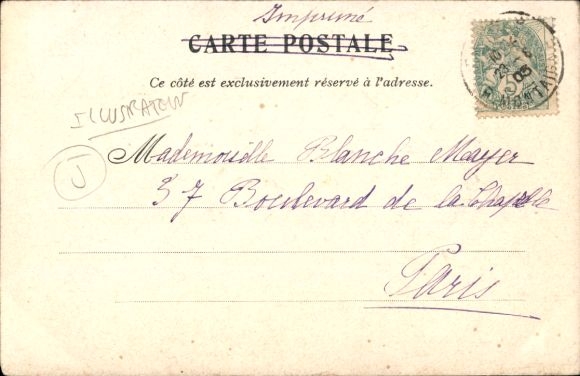 Imprimé
CARTE POSTALE
Ce côté est exclusivement réservé à l'adresse.
ILLUSTRATEUR
J
Mademoiselle Blanche Mayer
37 Boulevard de la Chapelle
Paris